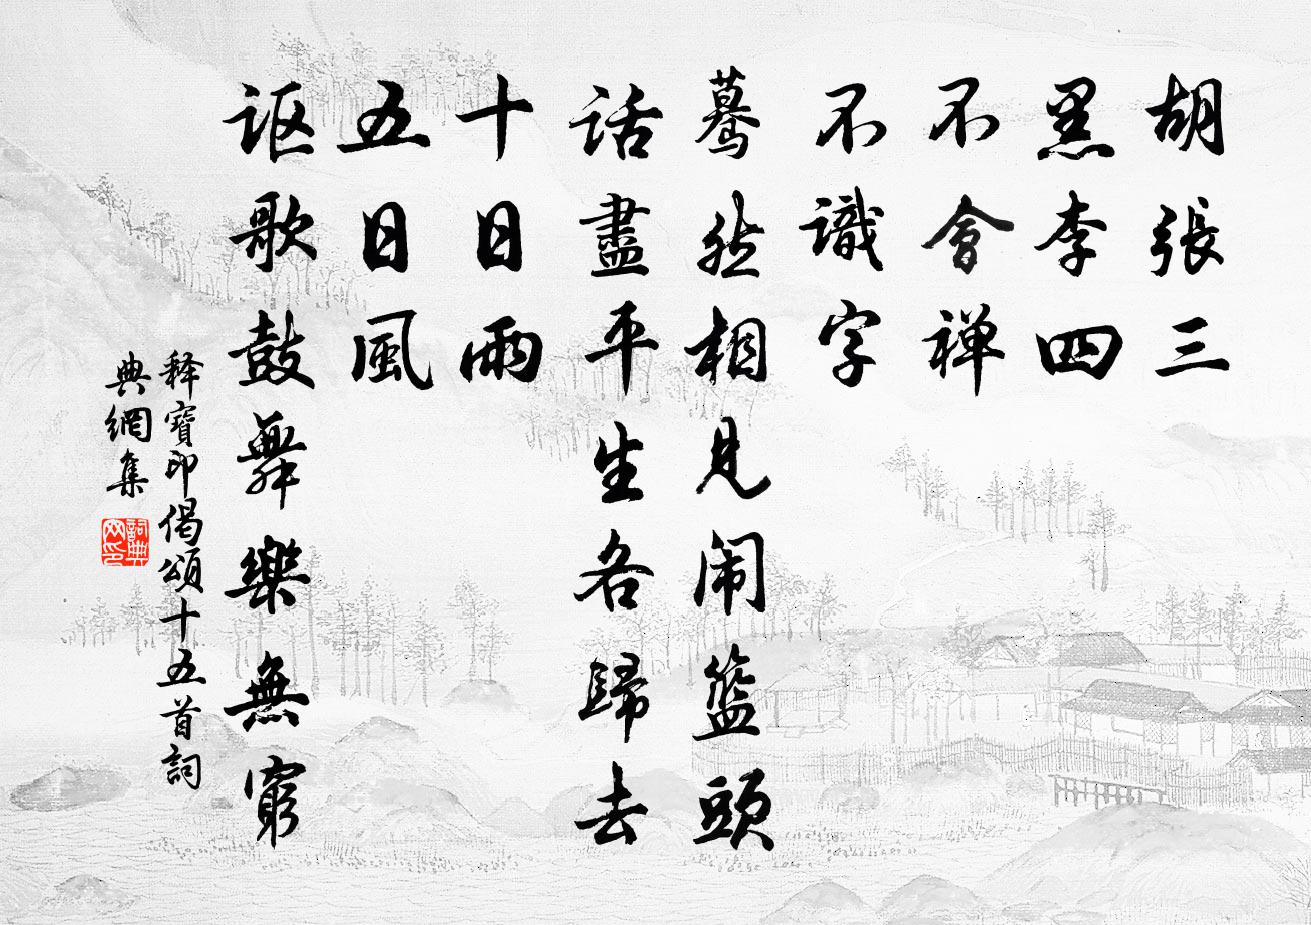 胡張三
黑李四
不會禅
不識字
蓦然相見闹籃頭
話盡平生各歸去
十日雨
五日風
讴歌鼓舞樂無窮
释寶印偈頌十五首詞
典網集
詞典网印